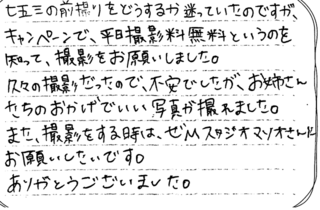 七五三の前撮りをどうするか迷っていたのですが、
キャンペーンで、平日撮影料無料というのを
知って、撮影をお願いしました。
久々の撮影だったので、不安でしたが、お姉さん
たちのおかげでいい写真が撮れました。
また、撮影をする時は、ぜひスタジオマリオさんに
お願いしたいです。
ありがとうございました。